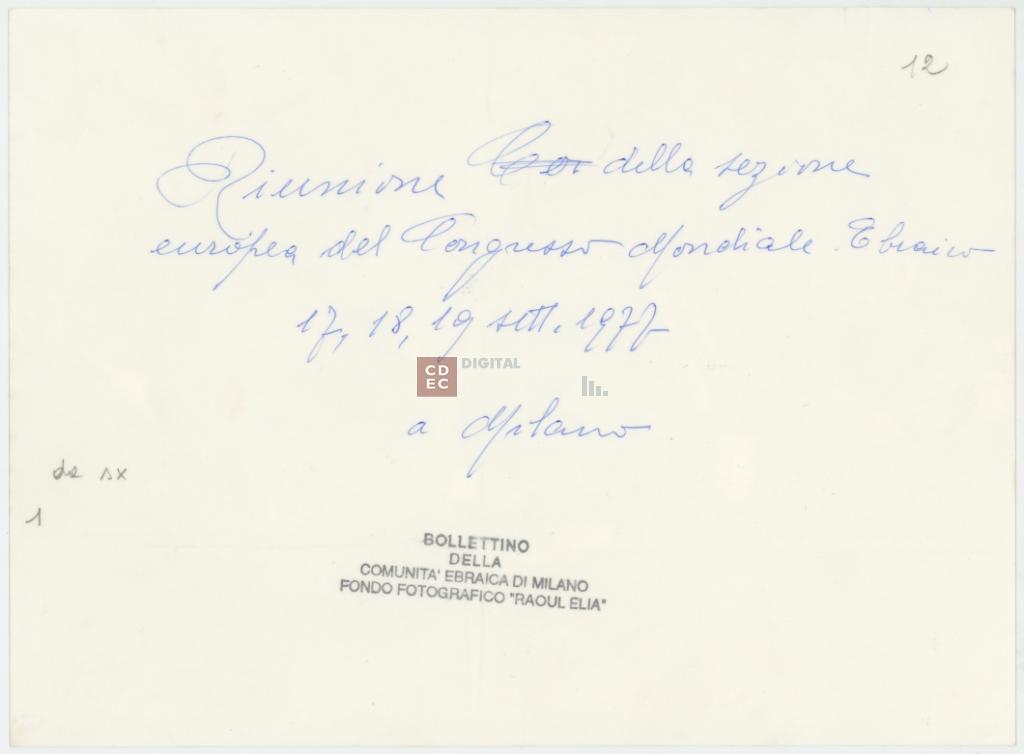 12
Riunione della sezione
europea del Congresso Mondiale Ebraico
17, 18, 19 sett. 1977
CDEC DIGITAL
a Milano
da sx
1
BOLLETTINO
DELLA
COMUNITA' EBRAICA DI MILANO
FONDO FOTOGRAFICO "RAOUL ELIA"